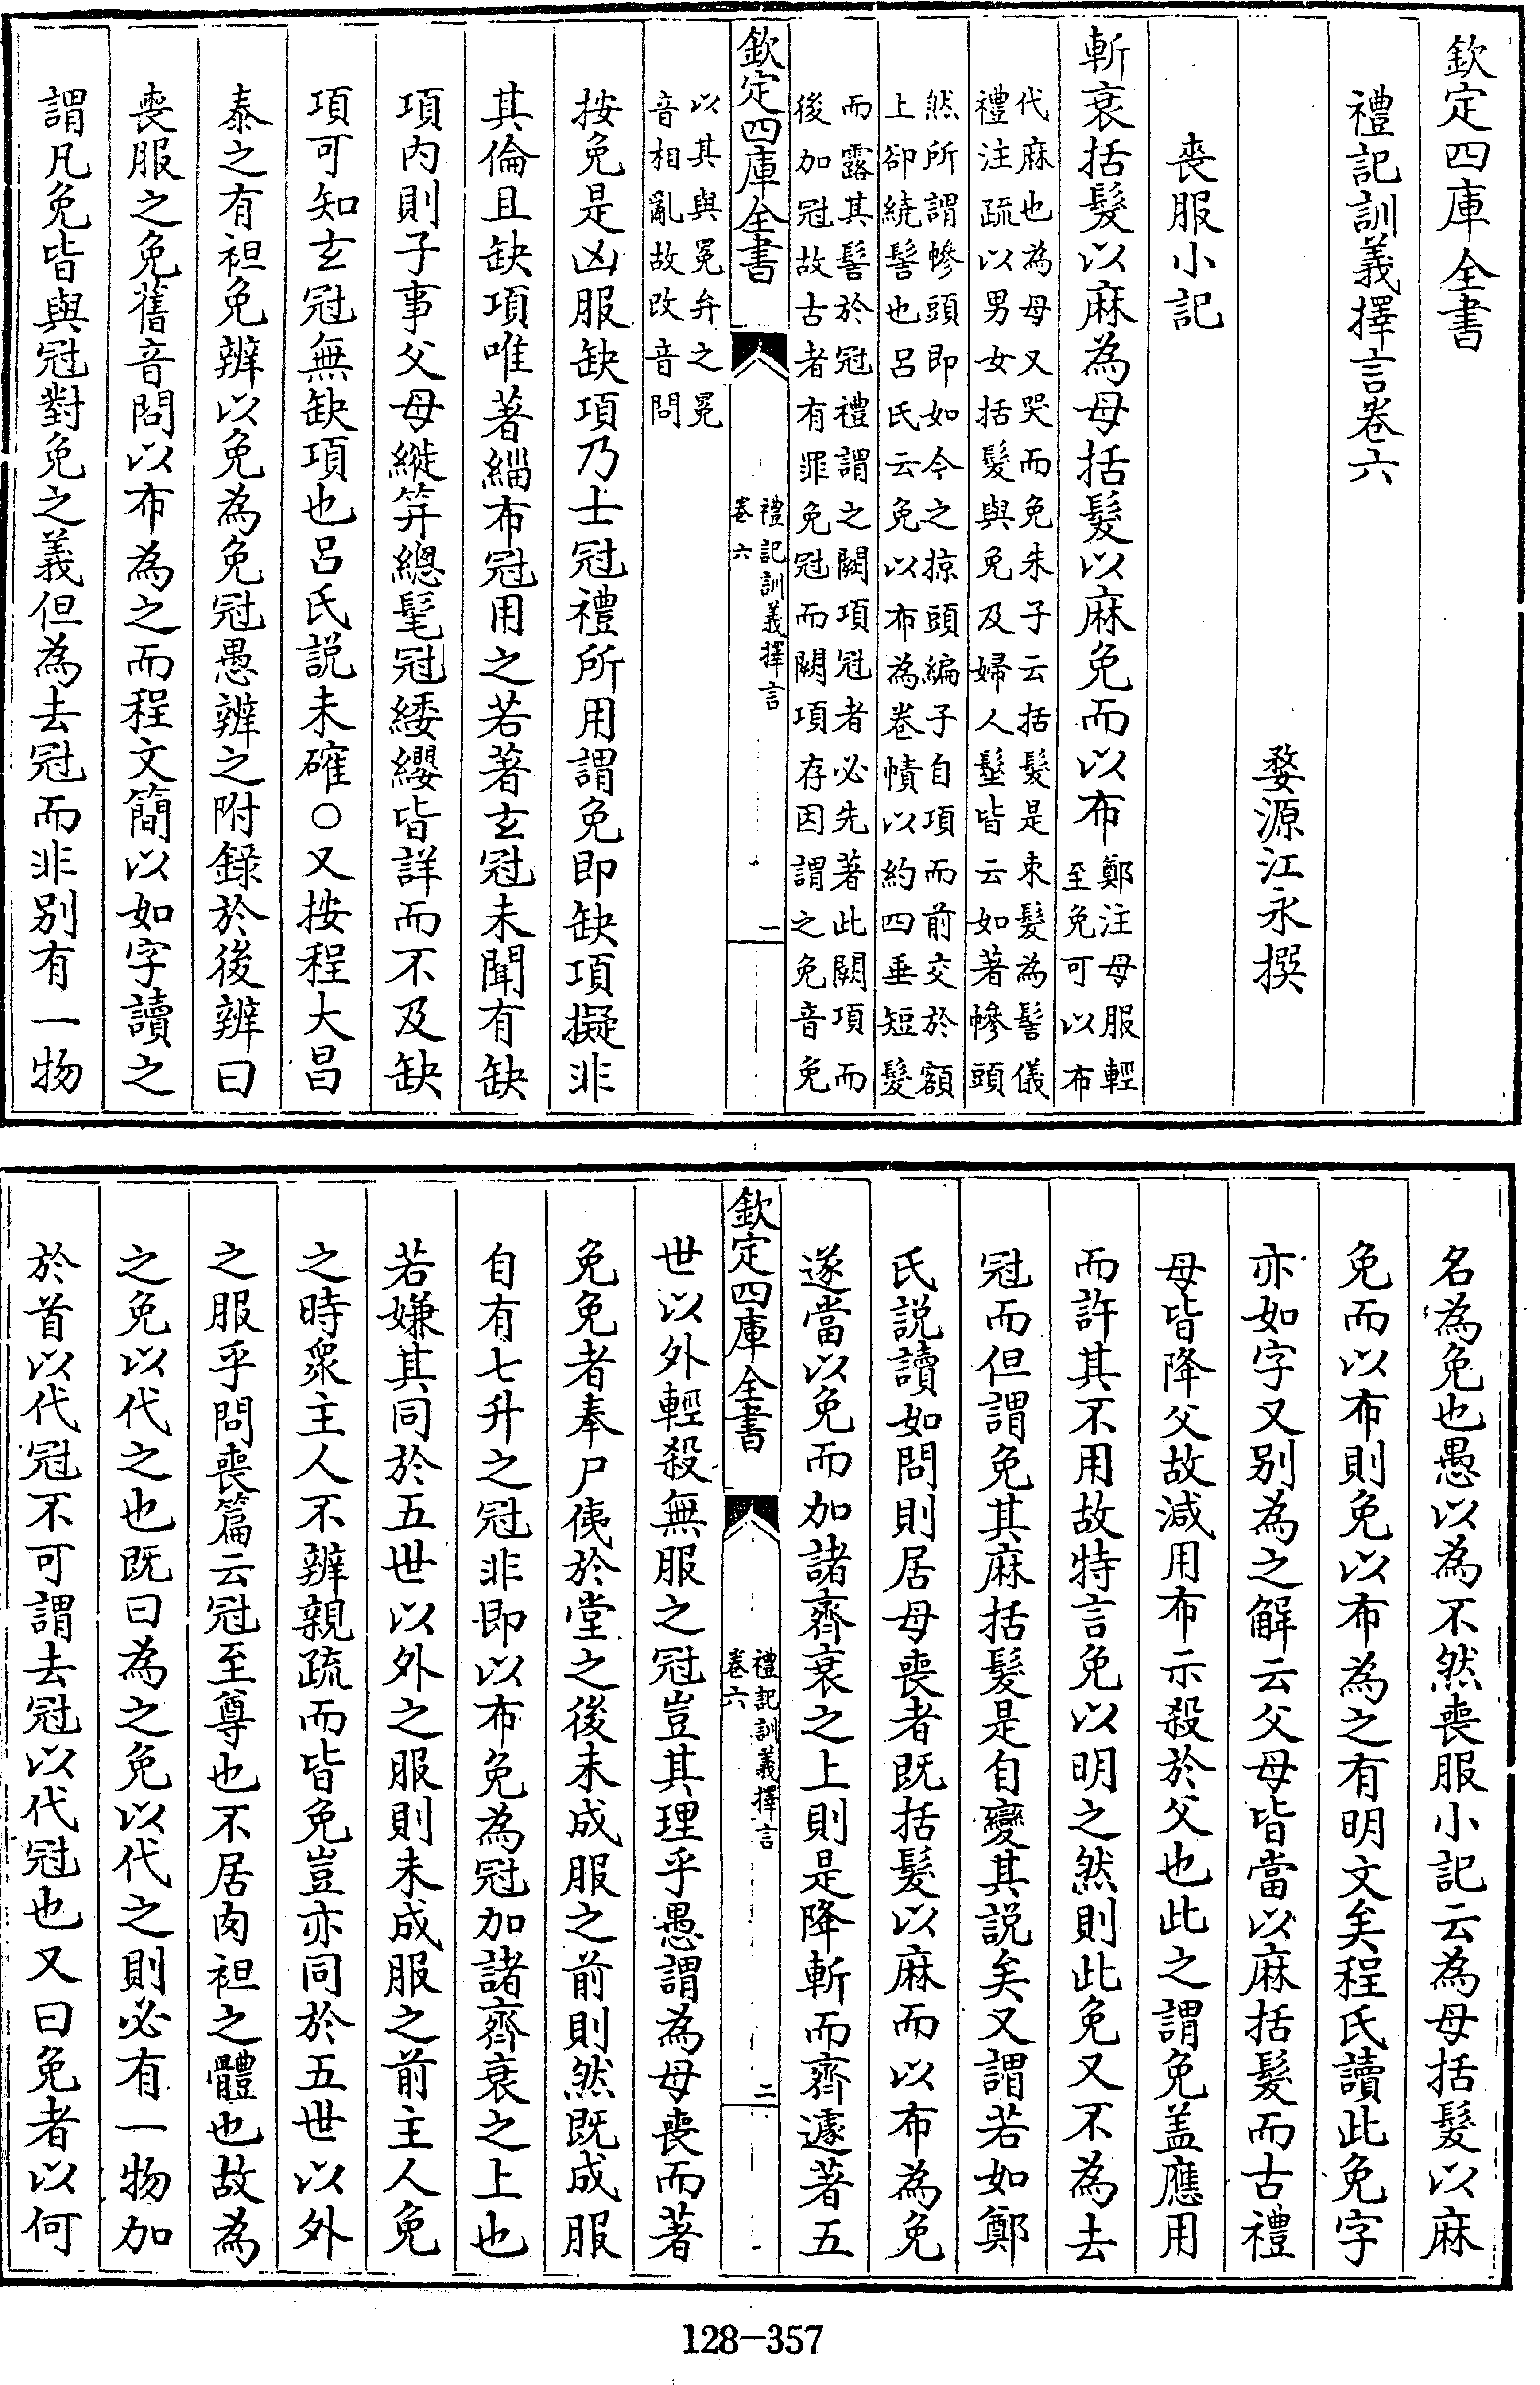 欽定四庫全書
禮記訓義擇言卷六
婺源江永撰
喪服小記
斬衰括髮以麻為母括髮以麻免而以布
鄭注母服輕
至免可以布
代麻也為母又哭而免朱子云括髮是束髮為髻儀
禮注疏以男女括髮與免及婦人髽皆云如著幓頭
然所謂幓頭即如今之掠頭編子自項而前交於額
上卻繞髻也呂氏云免以布為卷幘以約四垂短髮
而露其髻於冠禮謂之闕項冠者必先著此闕項而
後加冠故古者有罪免冠而闕項存因謂之免音免
欽定四庫全書
禮記訓義擇言
卷六
一
以其與冕弁之冕
音相亂故改音問
按免是凶服缺項乃士冠禮所用謂免即缺項擬非
其倫且缺項唯著緇布冠用之若著玄冠未聞有缺
項內則子事父母縰笄總髦冠緌纓皆詳而不及缺
項可知玄冠無缺項也呂氏說未確○又按程大昌
泰之有袒免辨以免為免冠愚辨之附錄於後辨曰
喪服之免舊音問以布為之而程文簡以如字讀之
謂凡免皆與冠對免之義但為去冠而非別有一物
名為免也愚以為不然喪服小記云為母括髮以麻
免而以布則免以布為之有明文矣程氏讀此免字
亦如字又別為之解云父母皆當以麻括髮而古禮
母皆降父故減用布示殺於父也此之謂免盖應用
而許其不用故特言免以明之然則此免又不為去
冠而但謂免其麻括髮是自變其說矣又謂若如鄭
氏說讀如問則居母喪者既括髮以麻而以布為免
遂當以免而加諸齊衰之上則是降斬而齊遽著五
欽定四庫全書
禮記訓義擇言
卷六
二
世以外輕殺無服之冠豈其理乎愚謂為母喪而著
免免者奉尸侇於堂之後未成服之前則然既成服
自有七升之冠非即以布免為冠加諸齊衰之上也
若嫌其同於五世以外之服則未成服之前主人免
之時衆主人不辨親疏而皆免豈亦同於五世以外
之服乎問喪篇云冠至尊也不居肉袒之體也故為
之免以代之也既曰為之免以代之則必有一物加
於首以代冠不可謂去冠以代冠也又曰免者以何
128-357